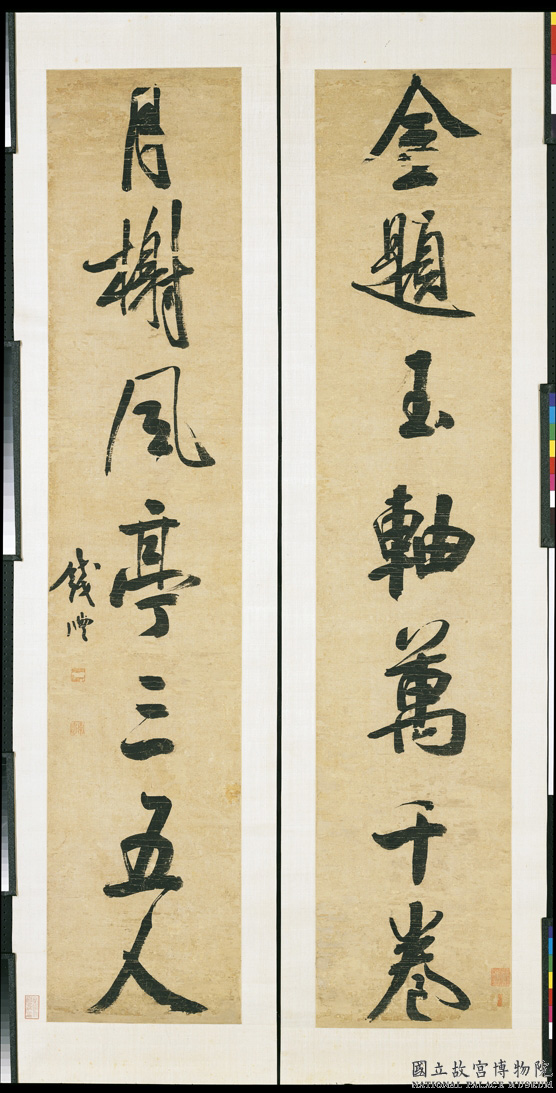 金題玉軸萬千卷
月榭風亭三五人
錢灃
國立故宮博物院
NATIONAL PALACE MUSEUM